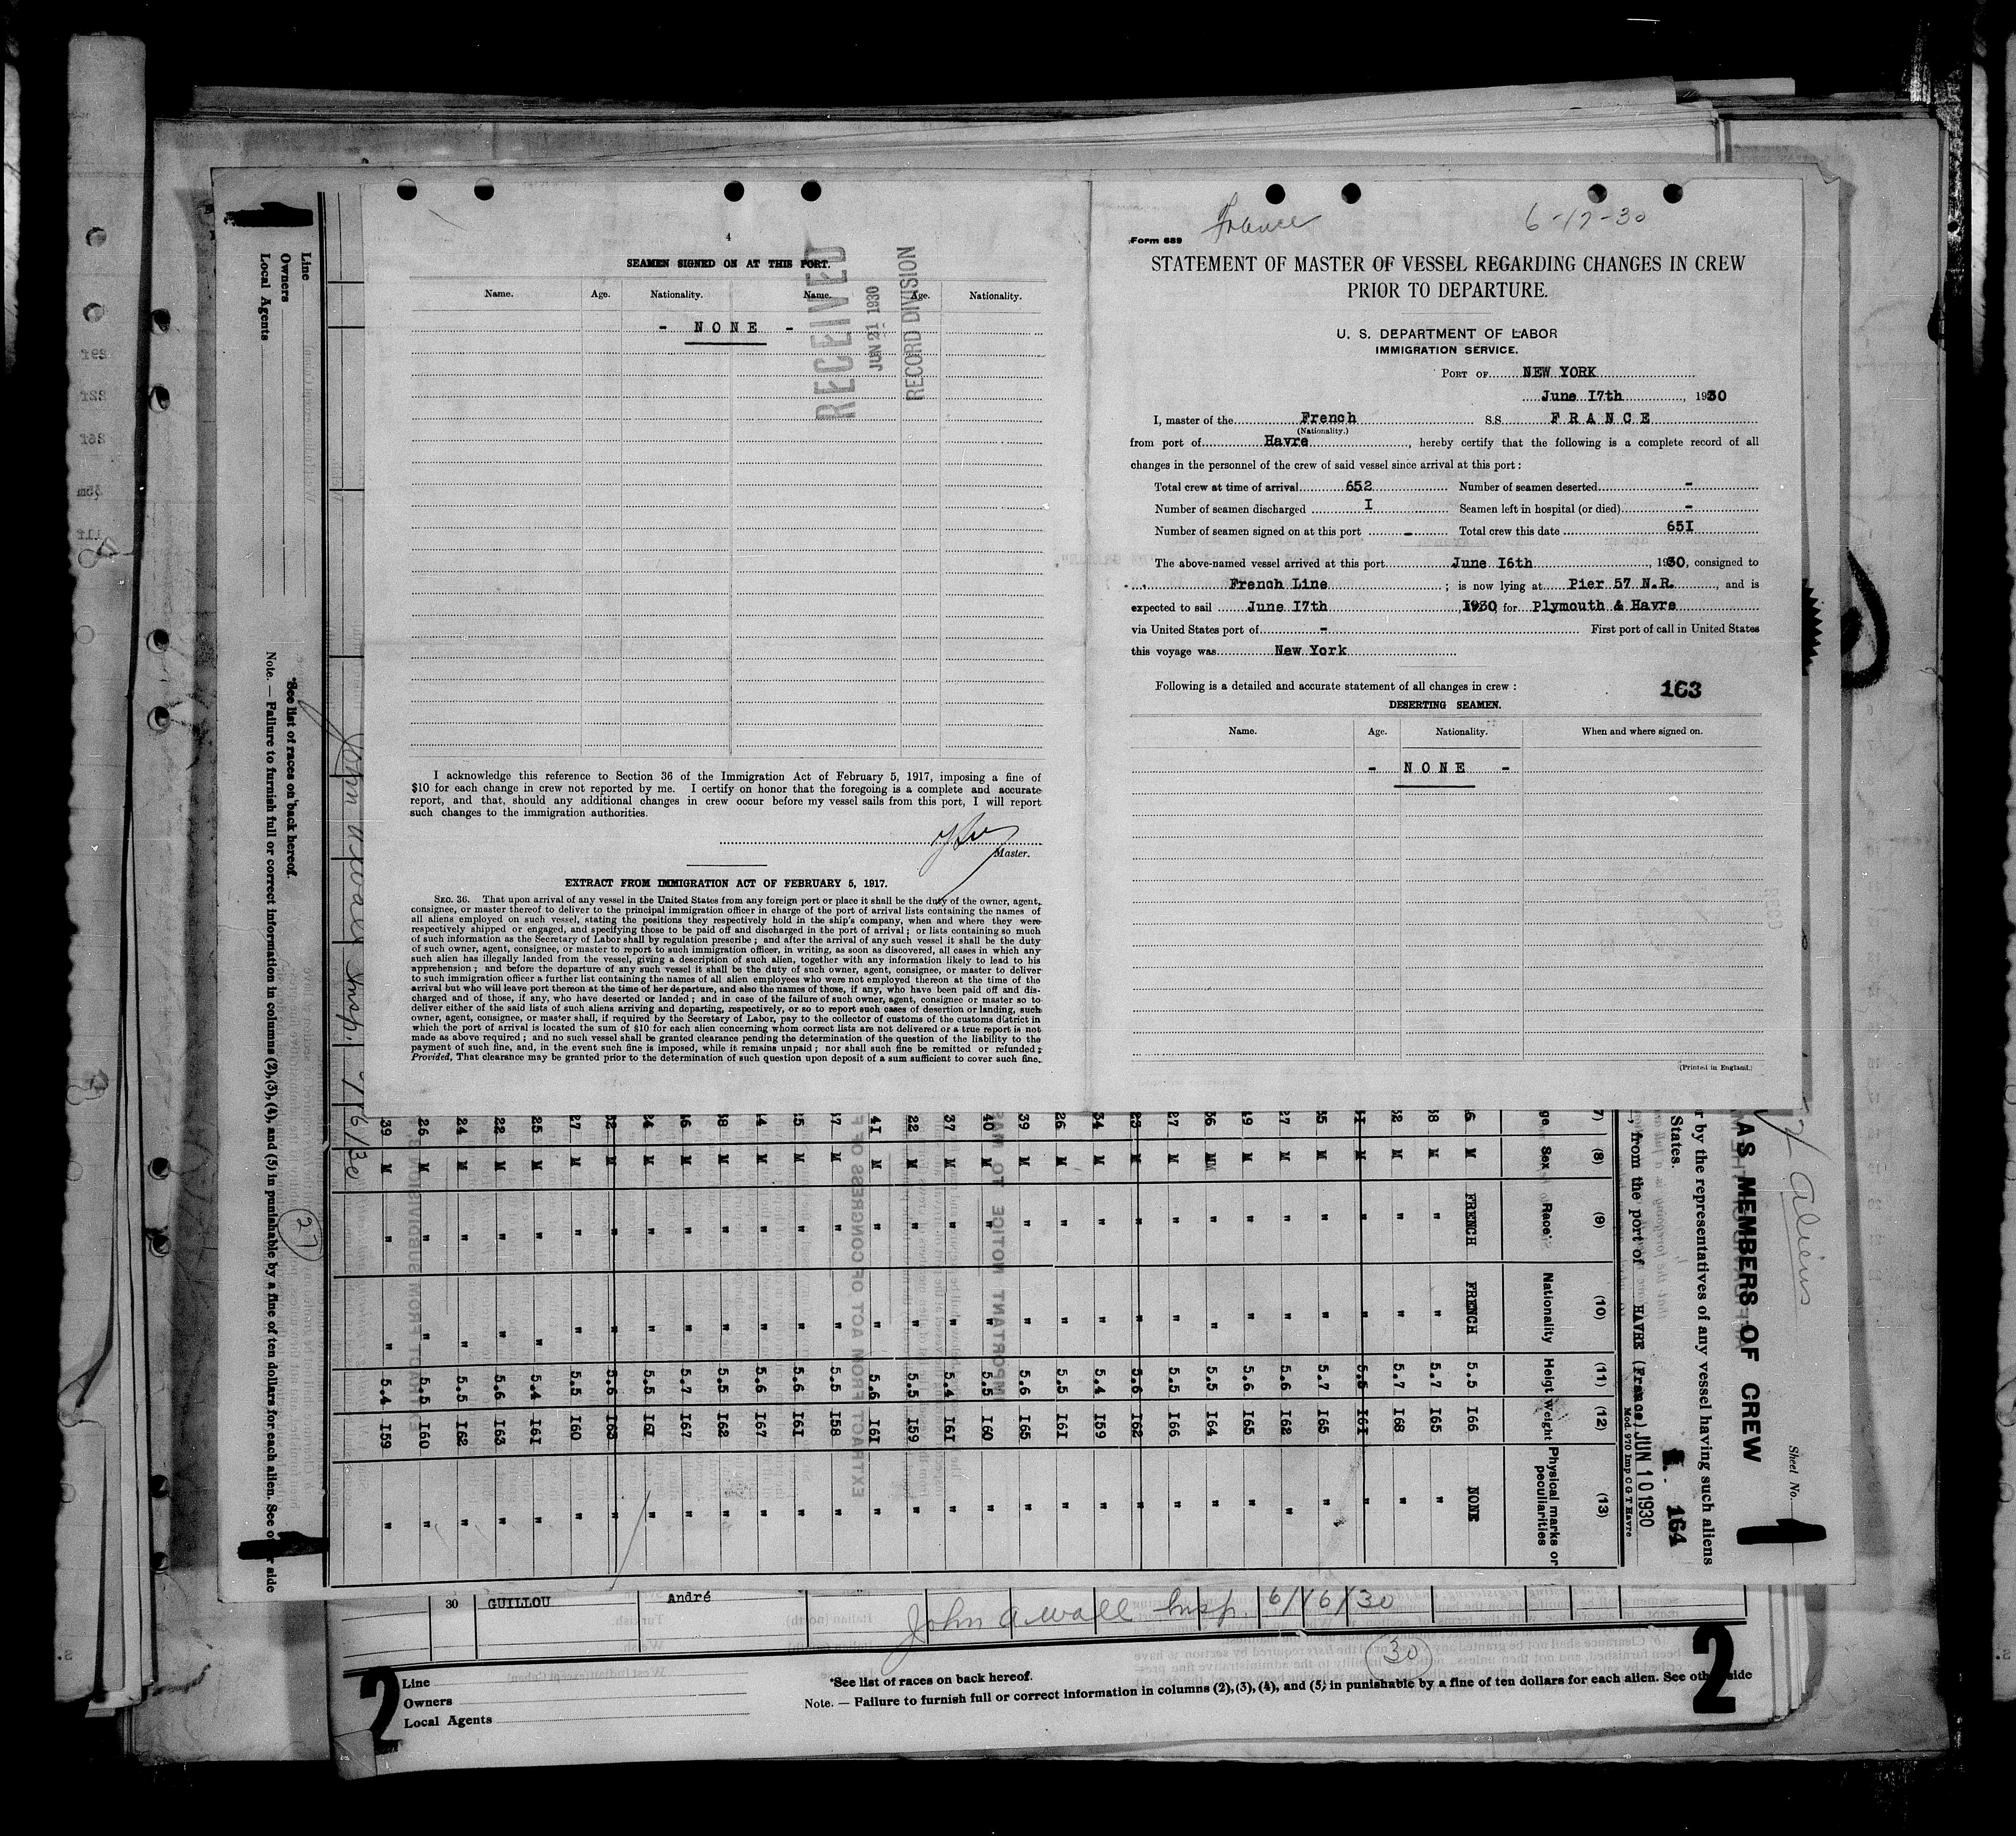 4
SEAMEN SIGNED ON AT THIS PORT.
Name. Age. Nationality. Name. Age. Nationality.
- NONE -
RECEIVED
JUN 21 1930
RECORD DIVISION
I acknowledge this reference to Section 36 of the Immigration Act of February 5, 1917, imposing a fine of
$10 for each change in crew not reported by me. I certify on honor that the foregoing is a complete and accurate
report, and that, should any additional changes in crew occur before my vessel sails from this port, I will report
such changes to the immigration authorities.
Master.
EXTRACT FROM IMMIGRATION ACT OF FEBRUARY 5, 1917.
SEC. 36. That upon arrival of any vessel in the United States from any foreign port or place it shall be the duty of the owner, agent,
consignee, or master thereof to deliver to the principal immigration officer in charge of the port of arrival lists containing the names of
all aliens employed on such vessel, stating the positions they respectively hold in the ship's company, when and where they were
respectively shipped or engaged, and specifying those to be paid off and discharged in the port of arrival; or lists containing so much
of such information as the Secretary of Labor shall by regulation prescribe; and after the arrival of any such vessel it shall be the duty
of such owner, agent, consignee, or master to report to such immigration officer, in writing, as soon as discovered, all cases in which any
such alien has illegally landed from the vessel, giving a description of such alien, together with any information likely to lead to his
apprehension; and before the departure of any such vessel it shall be the duty of such owner, agent, consignee, or master to deliver
to such immigration officer a further list containing the names of all alien employees who were not employed thereon at the time of the
arrival but who will leave port thereon at the time of her departure, and also the names of those, if any, who have been paid off and dis-
charged and of those, if any, who have deserted or landed; and in case of the failure of such owner, agent, consignee or master so to
deliver either of the said lists of such aliens arriving and departing, respectively, or so to report such cases of desertion or landing, such
owner, agent, consignee, or master shall, if required by the Secretary of Labor, pay to the collector of customs of the customs district in
which the port of arrival is located the sum of $10 for each alien concerning whom correct lists are not delivered or a true report is not
made as above required; and no such vessel shall be granted clearance pending the determination of the question of the liability to the
payment of such fine, and, in the event such fine is imposed, while it remains unpaid; nor shall such fine be remitted or refunded;
Provided, That clearance may be granted prior to the determination of such question upon deposit of a sum sufficient to cover such fine.
France 6-17-30
Form 689
STATEMENT OF MASTER OF VESSEL REGARDING CHANGES IN CREW
PRIOR TO DEPARTURE.
U. S. DEPARTMENT OF LABOR
IMMIGRATION SERVICE.
PORT OF NEW YORK
June I7th, 1930
I, master of the French SS. FRANCE
(Nationality.)
from port of Havre, hereby certify that the following is a complete record of all
changes in the personnel of the crew of said vessel since arrival at this port:
Total crew at time of arrival 652 Number of seamen deserted -
Number of seamen discharged I Seamen left in hospital (or died) -
Number of seamen signed on at this port - Total crew this date 65I
The above-named vessel arrived at this port June I6th, 1930, consigned to
French Line; is now lying at Pier 57 N.R., and is
expected to sail June I7th, 1930, for Plymouth & Havre
via United States port of - First port of call in United States
this voyage was New York
Following is a detailed and accurate statement of all changes in crew: 163
DESERTING SEAMEN.
Name. Age. Nationality. When and where signed on.
- NONE -
(Printed in England.)
Line
Owners
Local Agents
*See list of races on back hereof.
Note. — Failure to furnish full or correct information in columns (2), (3), (4), and (5) in punishable by a fine of ten dollars for each alien. See other side
27
Aliens
Sheet No.
AS MEMBERS OF CREW
r by the representatives of any vessel having such aliens
States.
164
, from the port of HAVRE (France) JUN 10 1930
Mod. 970 Imp C G T Havre
(8) (9) (10) (11) (12) (13)
Sex Race* Nationality Heigt Weight Physical marks or peculiarities
M FRENCH FRENCH 5.5 I66 NONE
M " " 5.7 I65 "
M " " 5.7 I68 "
M " " 5.5 I6I "
M " " 5.7 I65 "
M " " 5.6 I62 "
M " " 5.6 I65
M " " 5.5 I64
M " " 5.5 I66 "
M " " 5.6 I62 "
M " " 5.4 I59 "
M " " 5.5 I6I "
M " " 5.6 I65 "
M " " 5.5 I60 "
M " " 5.4 I6I "
M " " 5.5 I59 "
M " " 5.6 I6I "
M " " 5.5 I58 "
M " " 5.6 I6I "
M " " 5.6 I67 "
M " " 5.5 I62 "
M " " 5.7 I67 "
M " " 5.5 I6I "
M " " 5.6 I63 "
M " " 5.5 I60 "
M " " 5.4 I6I "
M " " 5.6 I63 "
M " " 5.5 I62 "
M " " 5.5 I60 "
M " " 5.4 I59 "
30 GUILLOU André
John A Wall Insp. 6/16/30
30
2 2
Line
Owners
Local Agents
*See list of races on back hereof.
Note. — Failure to furnish full or correct information in columns (2), (3), (4), and (5) in punishable by a fine of ten dollars for each alien. See other side